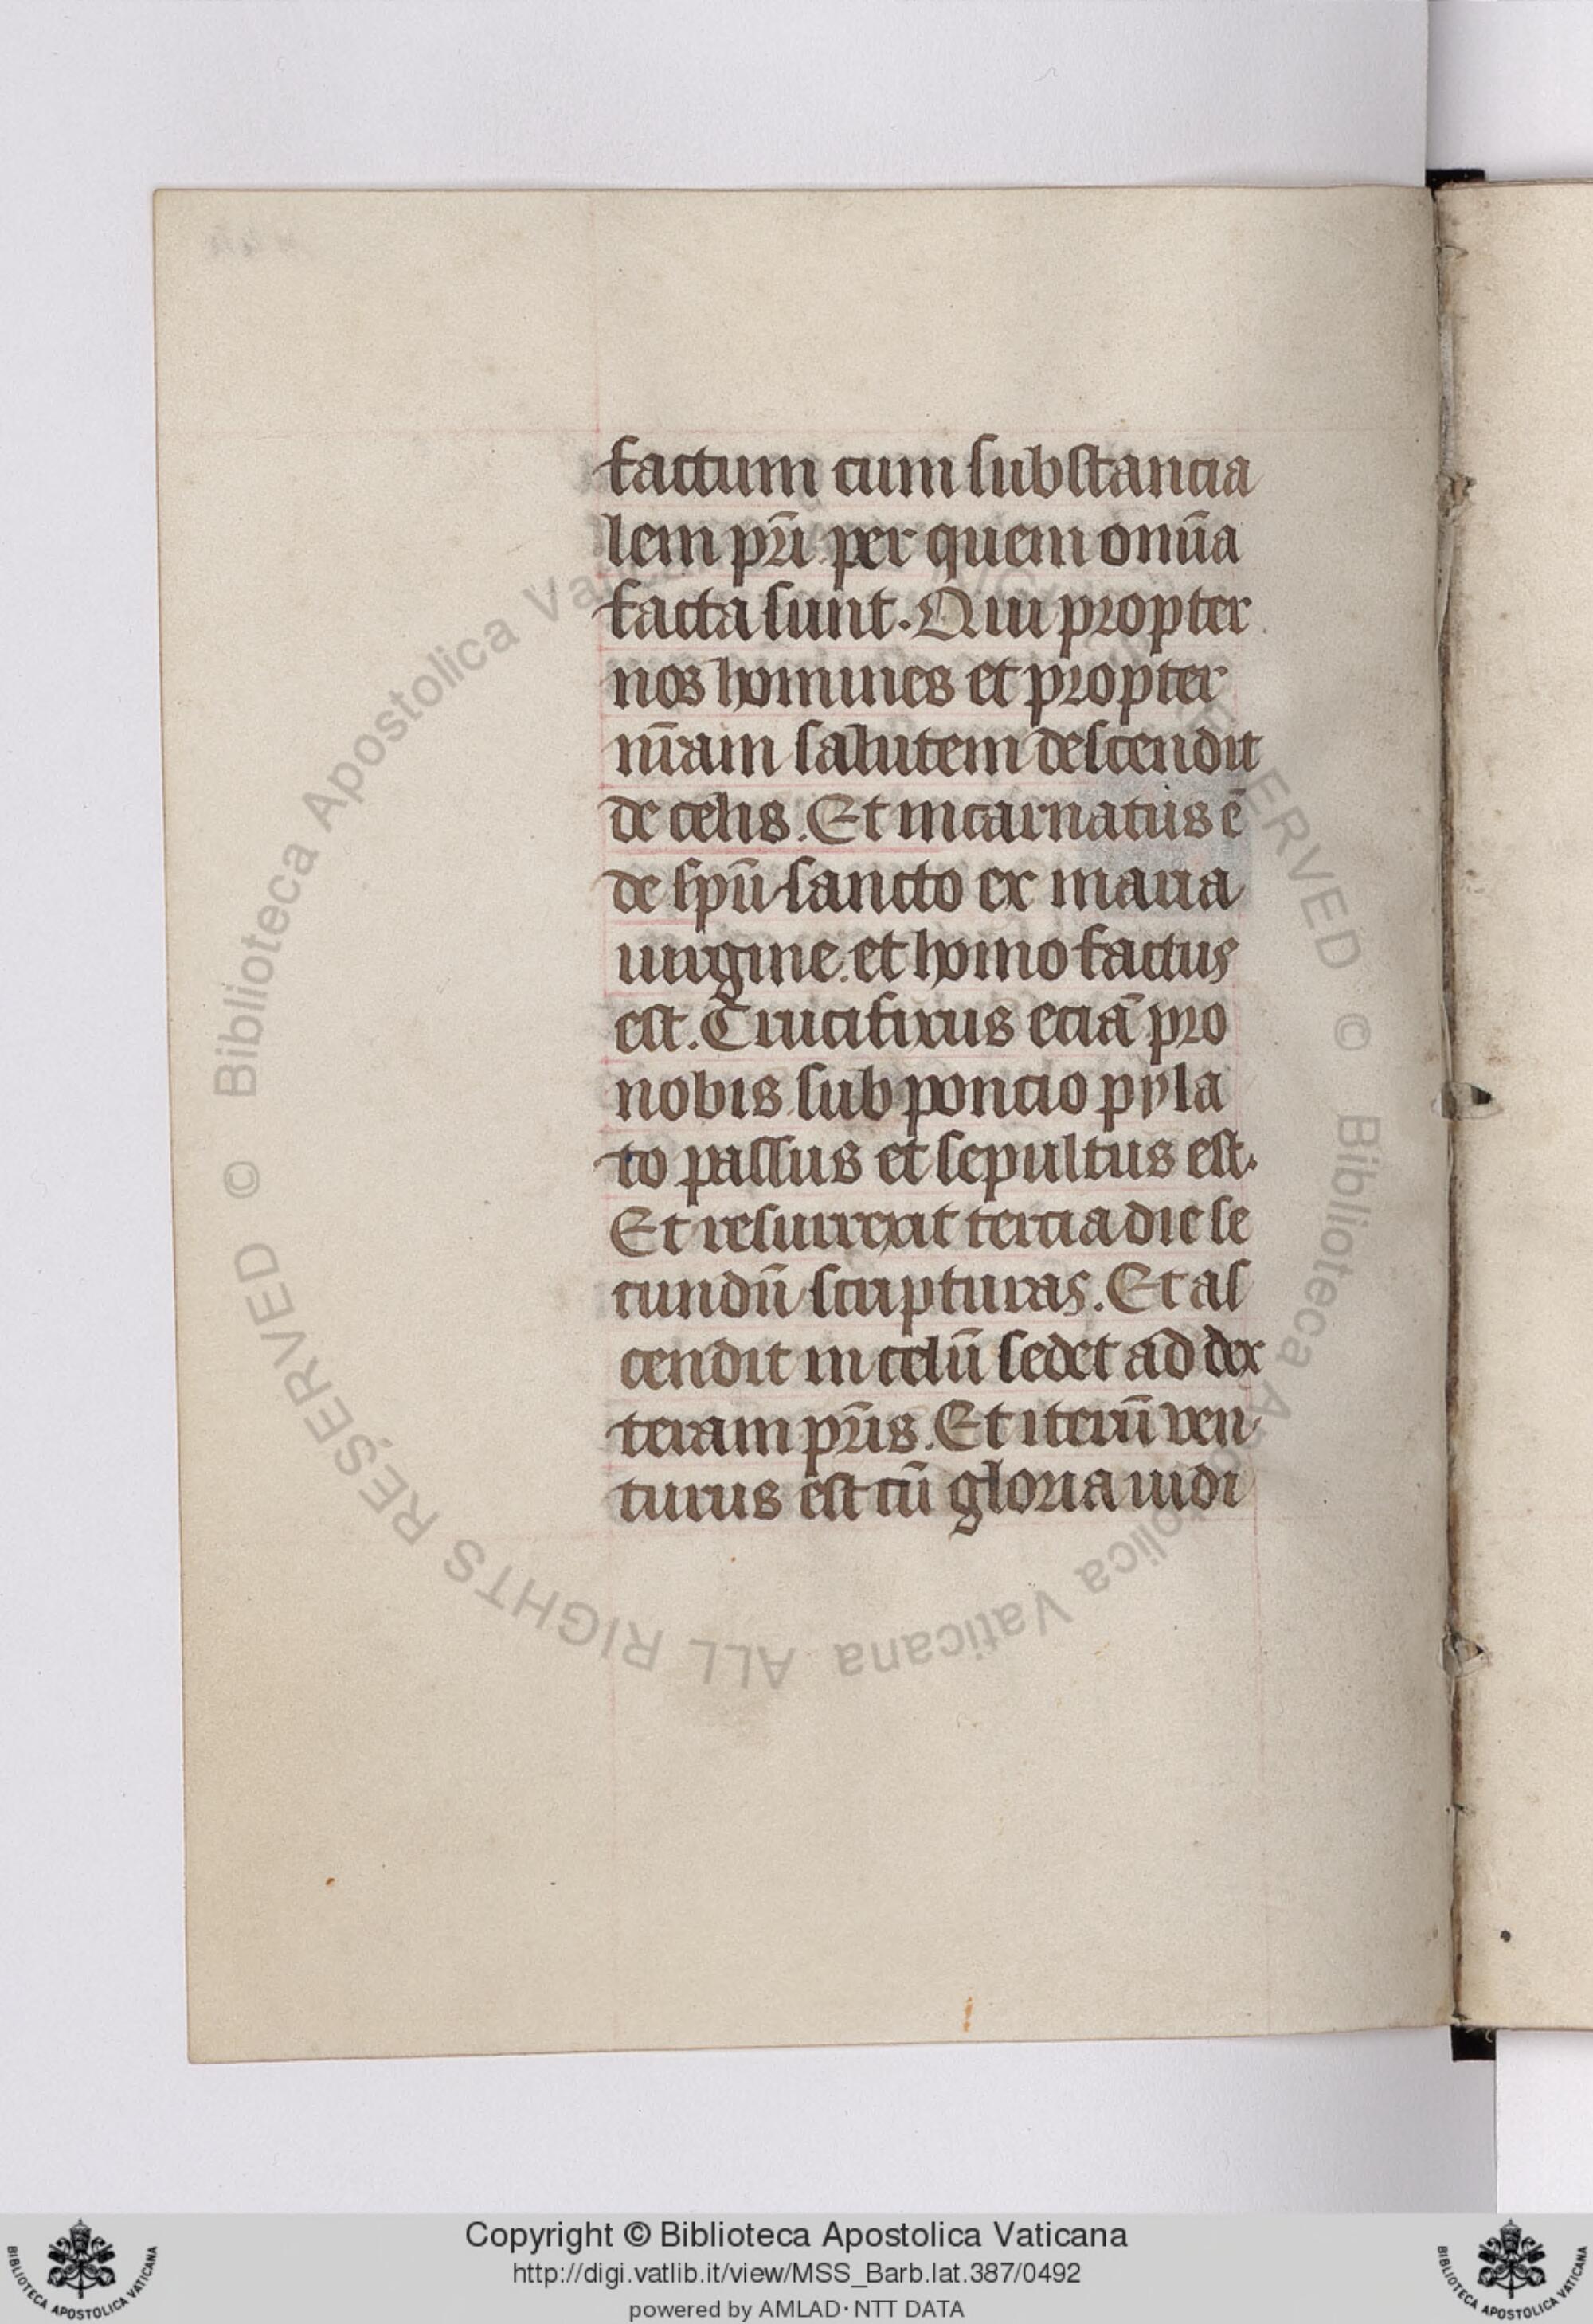 factum cum substancia
lem pr̄i per quem om̄ia
facta sunt. Qui propter
nos homines et propter
nr̄am salutem descendit
de celis. Et incarnatus ē
de sp̄u sancto ex maria
uirgine. et homo factus
est. Crucifixus eciā pro
nobis sub poncio pyla
to passus et sepultus est.
Et resurrexit tercia die se
cundū scripturas. Et as
cendit in celū sedet ad dex
teram pr̄is. Et iterū ven
turus est cū gloria iudi
Copyright © Biblioteca Apostolica Vaticana
http://digi.vatlib.it/view/MSS_Barb.lat.387/0492
powered by AMLAD·NTT DATA
BIBLIOTECA APOSTOLICA VATICANA
BIBLIOTECA APOSTOLICA VATICANA
© Biblioteca Apostolica Vaticana ALL RIGHTS RESERVED